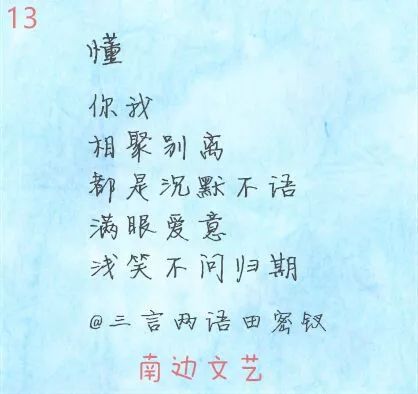 13
懂
你我
相聚别离
都是沉默不语
满眼爱意
浅笑不问归期
@三言两语田密钗
南边文艺